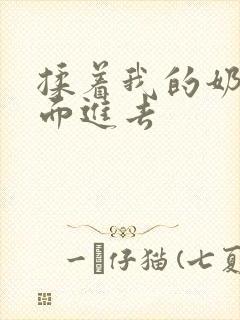 揉着我的奶
而进去
一 仔猫(七夏